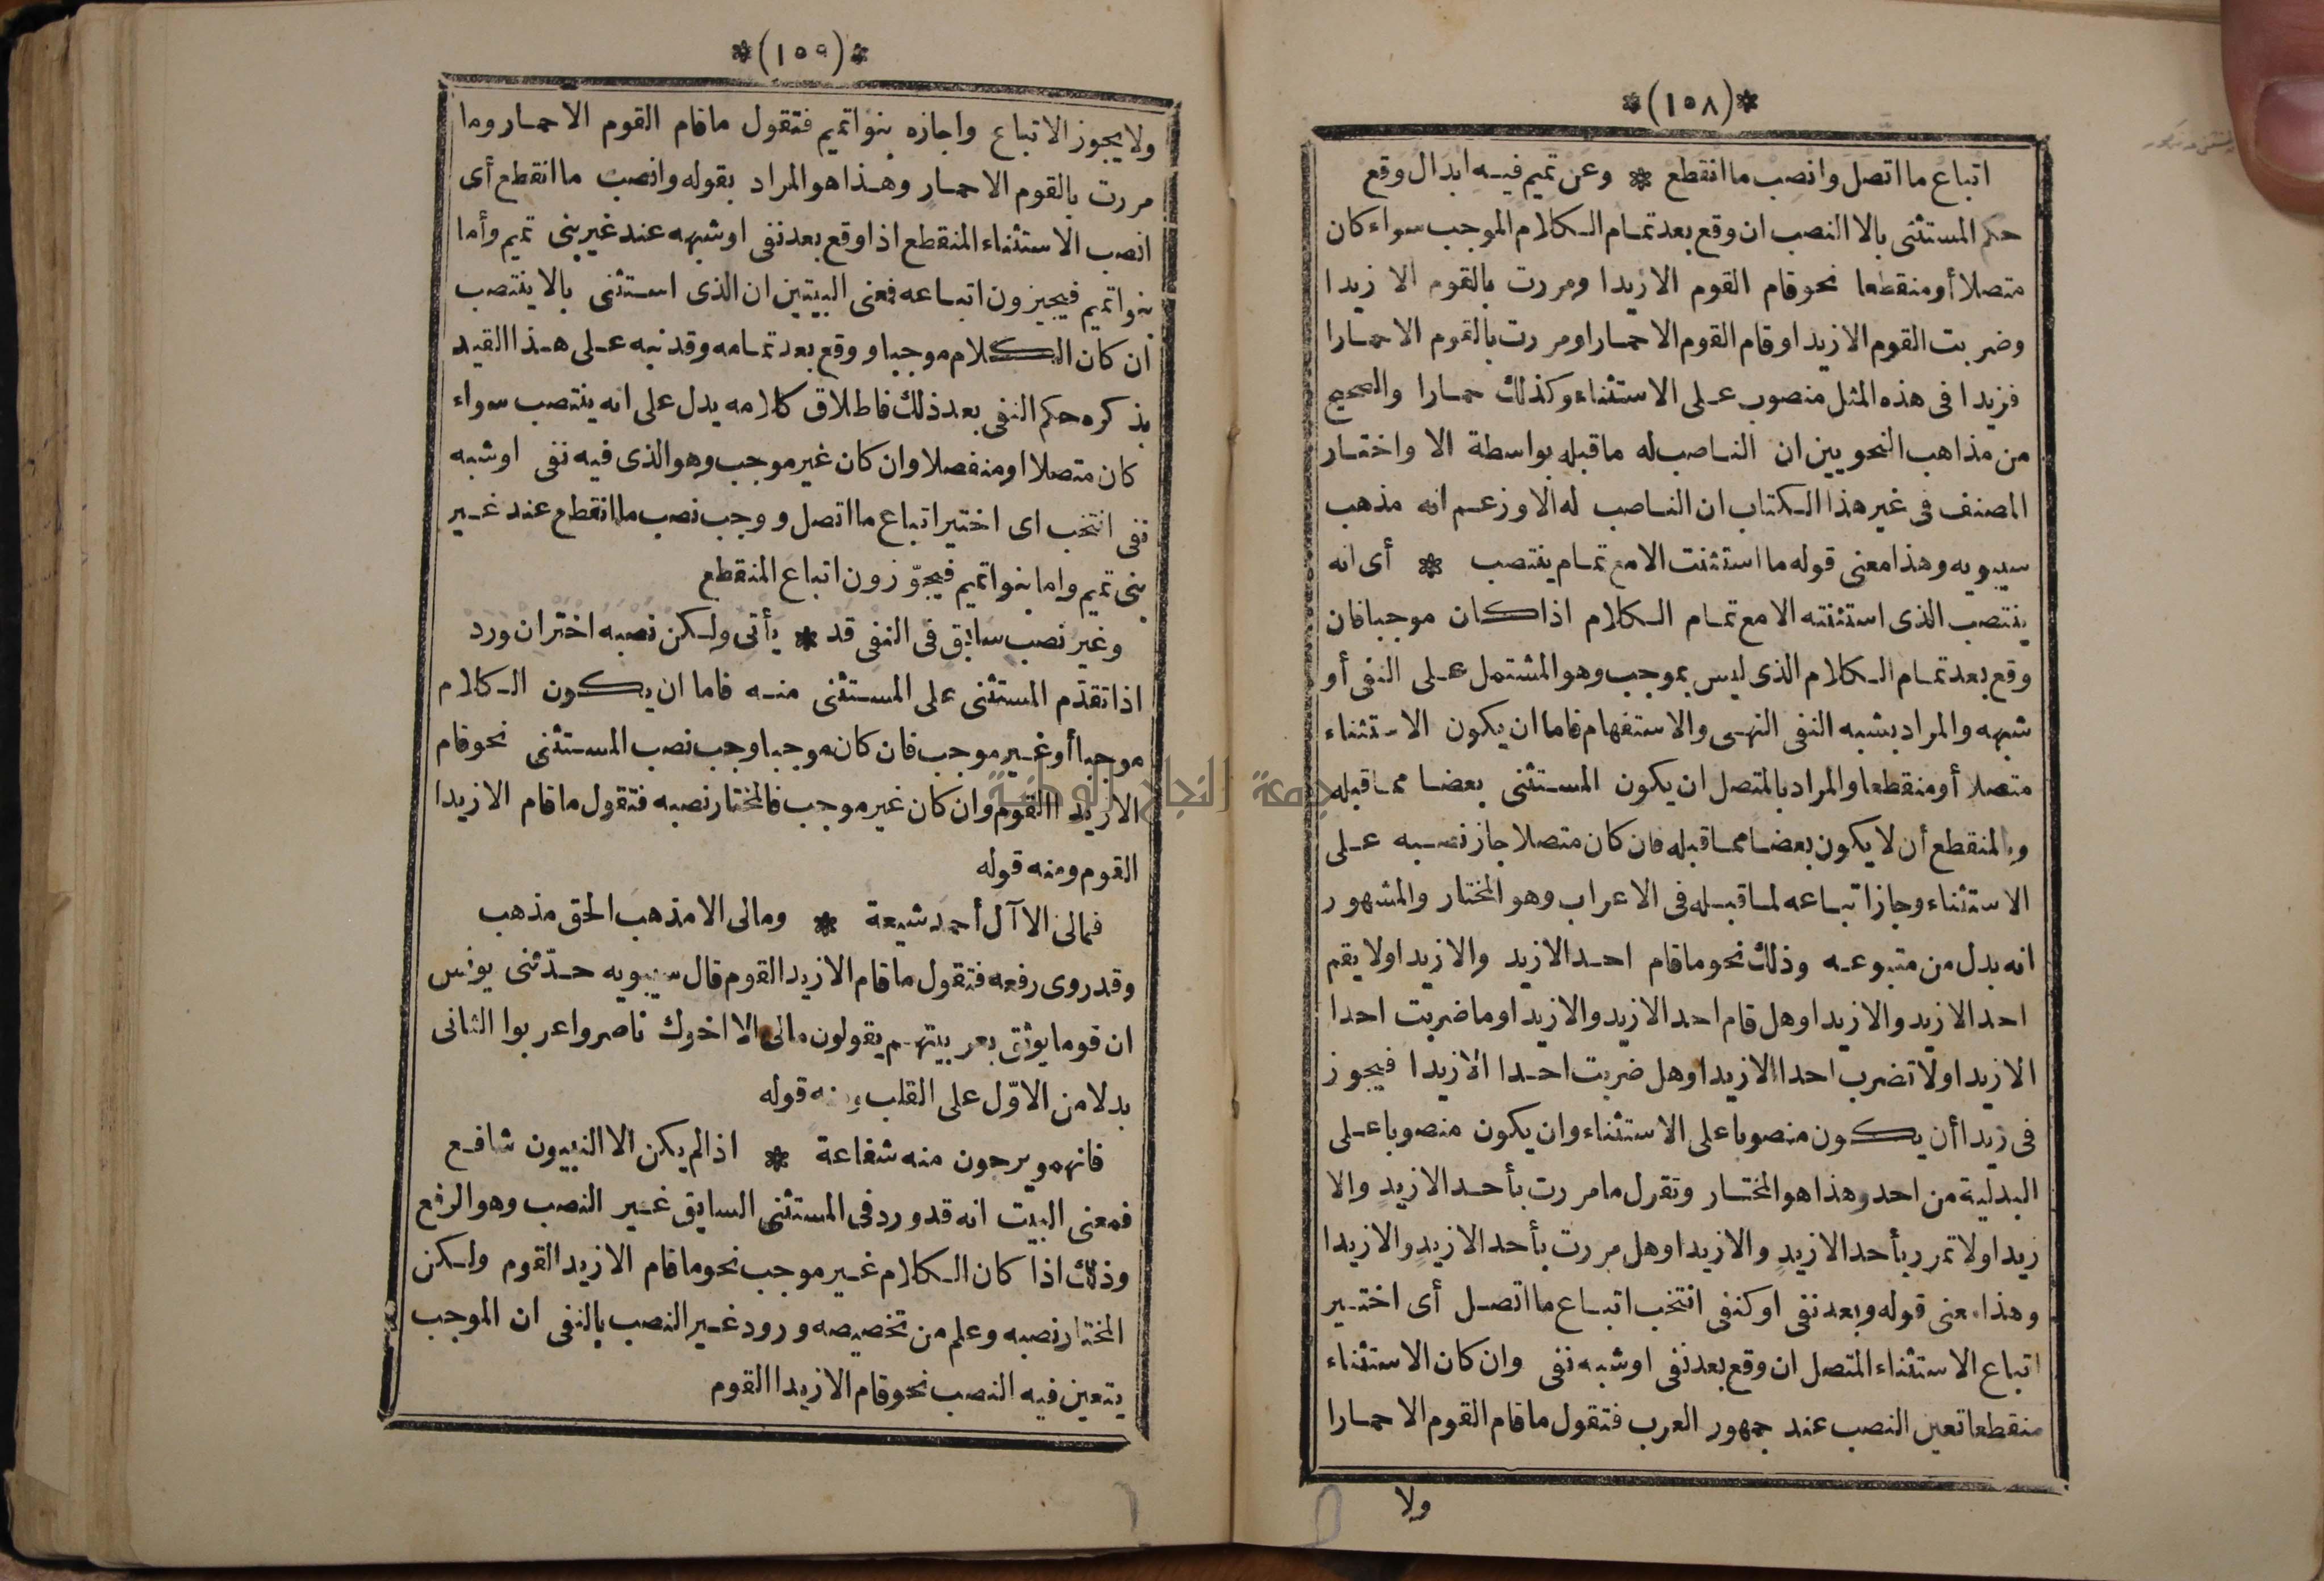 *(١٥٨)*
اتباع ما اتصل وانصب ما انقطع * وعن تميم فيه ابدال وقع
حكم المستثنى بالا النصب ان وقع بعد تمام الكلام الموجب سواء كان
متصلا أو منقطعا نحو قام القوم الا زيدا ومررت بالقوم الا زيدا
وضربت القوم الا زيدا وقام القوم الا حمارا ومررت بالقوم الا حمارا
فزيدا فى هذه المثل منصوب على الاستثناء وكذلك حمارا والصحيح
من مذاهب النحويين ان الناصب له ما قبله بواسطة الا واختار
المصنف فى غير هذا الكتاب ان الناصب له الا وزعم انه مذهب
سيبويه وهذا معنى قوله ما استثنت الا مع تمام ينتصب * أى انه
ينتصب الذى استثنته الا مع تمام الكلام اذا كان موجبا فان
وقع بعد تمام الكلام الذى ليس بموجب وهو المشتمل على النفى أو
شبهه والمراد بشبه النفى النهى والاستفهام فاما ان يكون الاستثناء
متصلا أو منقطعا والمراد بالمتصل ان يكون المستثنى بعضا مما قبله
وبالمنقطع أن لا يكون بعضا مما قبله فان كان متصلا جاز نصبه على
الاستثناء وجاز اتباعه لما قبله فى الاعراب وهو المختار والمشهور
انه بدل من متبوعه وذلك نحو ما قام احد الا زيد والا زيدا ولا يقم
احد الا زيد والا زيدا وهل قام احد الا زيد والا زيدا وما ضربت احدا
الا زيدا ولا تضرب احدا الا زيدا وهل ضربت احدا الا زيدا فيجوز
فى زيدا أن يكون منصوبا على الاستثناء وان يكون منصوبا على
البدلية من احد وهذا هو المختار وتقول ما مررت بأحد الا زيد والا
زيدا ولا تمرر بأحد الا زيد والا زيدا وهل مررت بأحد الا زيد والا زيدا
وهذا معنى قوله وبعد نفى او كنفى انتخب اتباع ما اتصل أى اختير
اتباع الاستثناء المتصل ان وقع بعد نفى او شبه نفى وان كان الاستثناء
منقطعا تعين النصب عند جمهور العرب فتقول ما قام القوم الا حمارا
ولا
*(١٥٩)*
ولا يجوز الاتباع واجازه بنو اتميم فتقول ما قام القوم الا حمار وما
مررت بالقوم الا حمار وهذا هو المراد بقوله وانصب ما انقطع أى
انصب الاستثناء المنقطع اذا وقع بعد نفى او شبهه عند غير بنى تميم وأما
بنو اتميم فيجيزون اتباعه فمعنى البيتين ان الذى استثنى بالا ينتصب
ان كان الكلام موجبا ووقع بعد تمامه وقد نبه على هذا القيد
بذكره حكم النفى بعد ذلك فاطلاق كلامه يدل على انه ينتصب سواء
كان متصلا او منفصلا وان كان غير موجب وهو الذى فيه نفى او شبه
نفى انتخب اى اختير اتباع ما اتصل ووجب نصب ما انقطع عند غير
بنى تميم واما بنو اتميم فيجوّزون اتباع المنقطع
وغير نصب سابق فى النفى قد * يأتى ولكن نصبه اختر ان ورد
اذا تقدّم المستثنى على المستثنى منه فاما ان يكون الكلام
موجبا أو غير موجب فان كان موجبا وجب نصب المستثنى نحو قام
الا زيدا القوم وان كان غير موجب فالمختار نصبه فتقول ما قام الا زيدا
القوم ومنه قوله
فمالى الا آل أحمد شيعة * ومالى الا مذهب الحق مذهب
وقد روى رفعه فتقول ما قام الا زيد القوم قال سيبويه حدّثنى يونس
ان قوما يوثق بعربيتهم يقولون مالى الا اخوك ناصر واعربوا الثانى
بدلا من الاوّل على القلب ومنه قوله
فانهمو يرجون منه شفاعة * اذا لم يكن الا النبيون شافع
فمعنى البيت انه قد ورد فى المستثنى السابق غير النصب وهو الرفع
وذلك اذا كان الكلام غير موجب نحو ما قام الا زيد القوم ولكن
المختار نصبه وعلم من تخصيصه ورود غير النصب بالنفى ان الموجب
يتعين فيه النصب نحو قام الا زيدا القوم
جامعة النجاح الوطنية